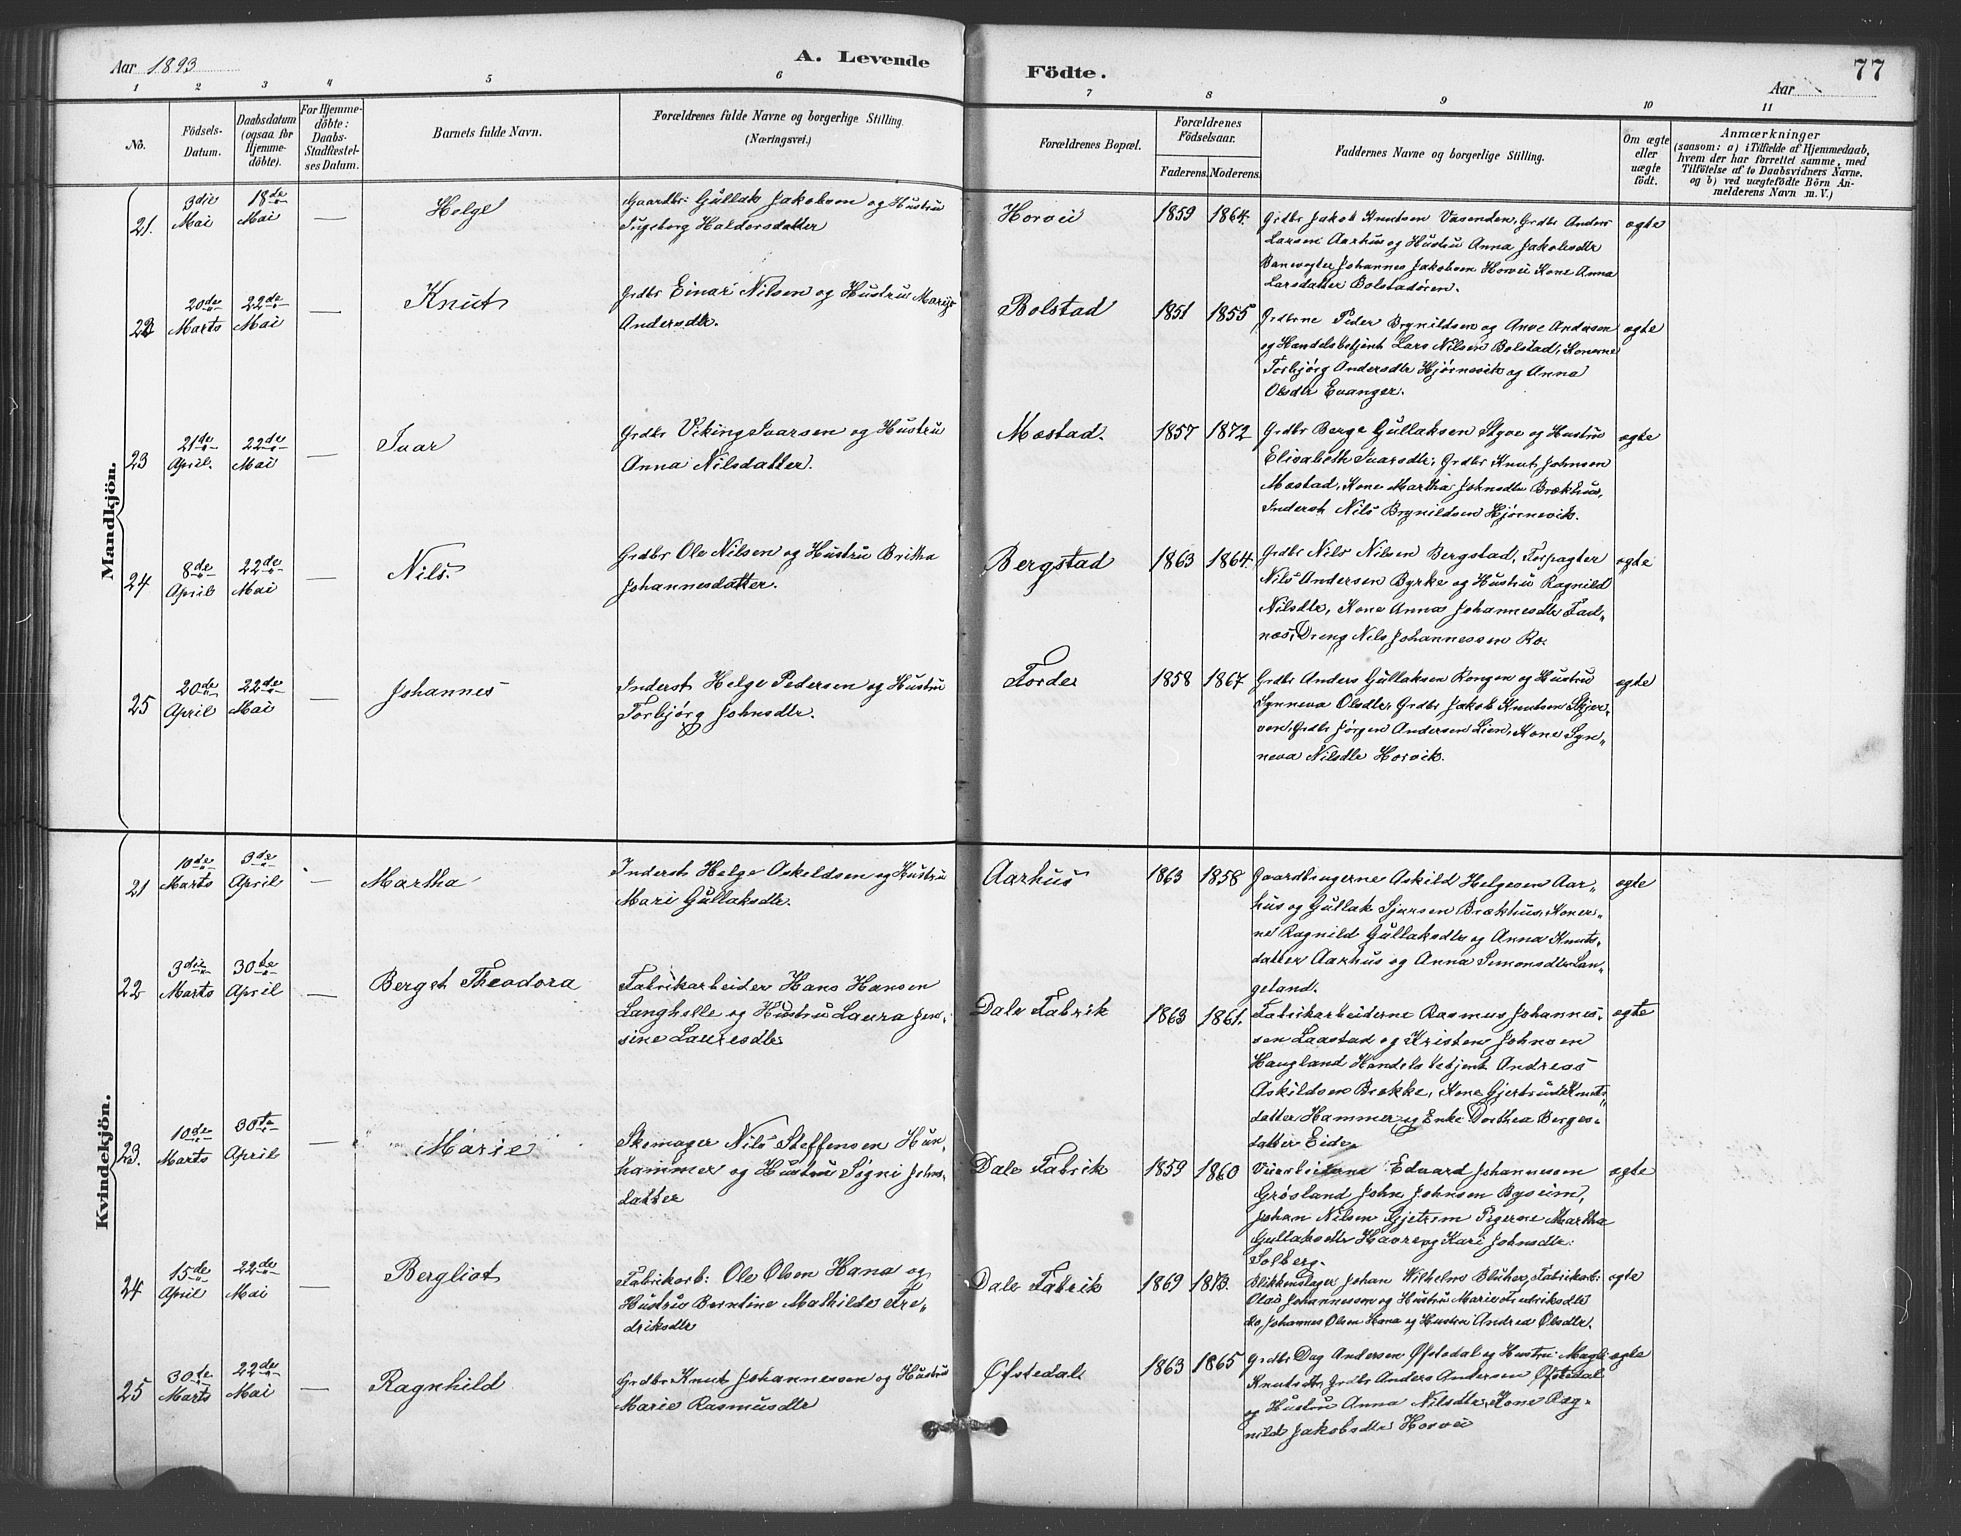 Aar 1893
A. Levende
Födte.
77
Aar
1 2 3 4 5 6 7 8 9 10 11
No.
Födsels-
Datum.
Daabsdatum
(ogsaa for
Hjemme-
döbte).
For Hjemme-
döbte:
Daabs-
Stadfæstel-
ses Datum.
Barnets fulde Navn.
Forældrenes fulde Navne og borgerlige Stilling.
(Næringsvei.)
Forældrenes Bopæl.
Forældrenes
Födselsaar.
Faderens. Moderens.
Faddernes Navne og borgerlige Stilling.
Om ægte
eller
uægte
födt.
Anmærkninger
(saasom: a) i Tilfælde af Hjemmedaab,
hvem der har forrettet samme, med
Tilföielse af to Daabsvidners Navne.
og b) ved uægtefödte Börn An-
melderens Navn m. V.)
Mandkjön.
21.
3die
Mai
18de
Mai
—
Helge
Gaardbr. Gullak Jakobsen og Hustru
Ingeborg Haldorsdatter
Horvei
1859 1864.
Grdbr Jakob Knutsen Vasenden, Grdbr Anders
Larsen Aarhus og Hustru Anna Jakobsdtr
Banevogter Johannes Jakobsen Horvei Kone Anna
Larsdatter Bolstadören.
ægte
22
20de
Marts
22de
Mai
—
Knut
Grdbr Einar Nilsen og Hustru Marijo
Andersdtr.
Bolstad
1851 1855
Grdbrne Peder Brynildsen og Anve Andersen
og Handelsbetjent Lars Nilsen Bolstad, Konerne
Torbjørg Andersdtr Hjørnevik og Anna
Olsdtr Evanger.
ægte
23
21de
April.
22de
Mai
—
Ivar
Grdbr Viking Ivarsen og Hustru
Anna Nilsdatter.
Mostad.
1857 1872
Grdbr Berge Gullaksen Styve og Hustru
Elisabeth Ivarsdtr, Grdbr Knut Johnsen
Mostad, Kone Martha Johnsdtr Brækhus,
Inderst Nils Brynildsen Hjørnevik.
ægte
24
8de
April
22de
Mai
—
Nils.
Grdbr Ole Nilsen og Hustru Britha
Johannesdatter.
Bergstad
1863 1864.
Grdbr Nils Nilsen Bergstad, Forpagter
Nils Andersen Byrke og Hustru Ragnild
Nilsdtr, Kone Anna Johannesdtr Fad-
næs, Dreng Nils Johannessen Ro.
ægte
25
20de
April
22de
Mai
—
Johannes
Inderst Helge Pedersen og Hustru
Torbjørg Johnsdtr.
Förder
1858 1867
Grdbr Anders Gullaksen Rongen og Hustru
Synneva Olsdtr, Grdbr Jakob Knutsen Skjer-
ven, Grdbr Jörgen Andersen Lien, Kone Syn-
neva Nilsdtr Horvik.
ægte
Kvindekjön.
21
10de
Marts
3de
April
—
Martha
Inderst Helge Askeldsen og Hustru
Mari Gullaksdtr.
Aarhus
1863 1858
Gaardbrugerne Askild Helgesen Aar-
hus og Gullak Sjursen Brækhus, Koner-
ne Ragnild Gullaksdtr og Anna Knuts-
datter Aarhus og Anna Simonsdtr Lan-
geland.
ægte
22
3die
Marts
30te
April
—
Berget Theodora
Fabrikarbeider Hans Hansen
Langhelle og Hustru Laura Jen-
sine Lauresdtr
Dale Fabrik
1863 1861.
Fabrikarbeiderne Rasmus Johannes-
sen Laastad og Kristen Johnsen
Haugland Handelsbetjent Andreas
Askildsen Brekke, Kone Gjertrud Knuts-
datter Hammer og Enke Dorthea Berges-
datter Eide
ægte
23.
10de
Marts
30te
April
—
Marie
Skomager Nils Steffensen Hun-
hammer og Hustru Signi Johns-
datter
Dale Fabrik
1859 1860
Edvard Johannesen
Grøsland John Johnsen Byseim,
Johan Nilsen Gjetrem Pigerne Martha
Gullaksdtr Havre og Kari Johnsdtr
Solberg.
ægte
24
15de
April
22de
Mai
—
Bergliot
Fabrikarb: Ole Olsen Hana og
Hustru Berntine Mathilde Fre-
driksdtr
Dale Fabrik
1869 1873.
Blikkenslager Johan Wilhelm Blüher, Fabrikarb:
Olai Johannessen og Hustru Marie Fredriksdtr
do, Johannes Olsen Hana og Hustru Andrea Olsdtr.
ægte
25
30te
Marts
22de
Mai
—
Ragnhild
Grdbr Knut Johannessen og Hustru
Marie Rasmusdtr
Øfstedal
1863 1865
Grdbr Dag Andersen Øfstedal og Hustru Magli
Knutsdtr, Grdbr Anders Andersen Øfstedal
og Hustru Anna Nilsdtr, Kone Rag-
nild Jakobsdtr Horvei
ægte